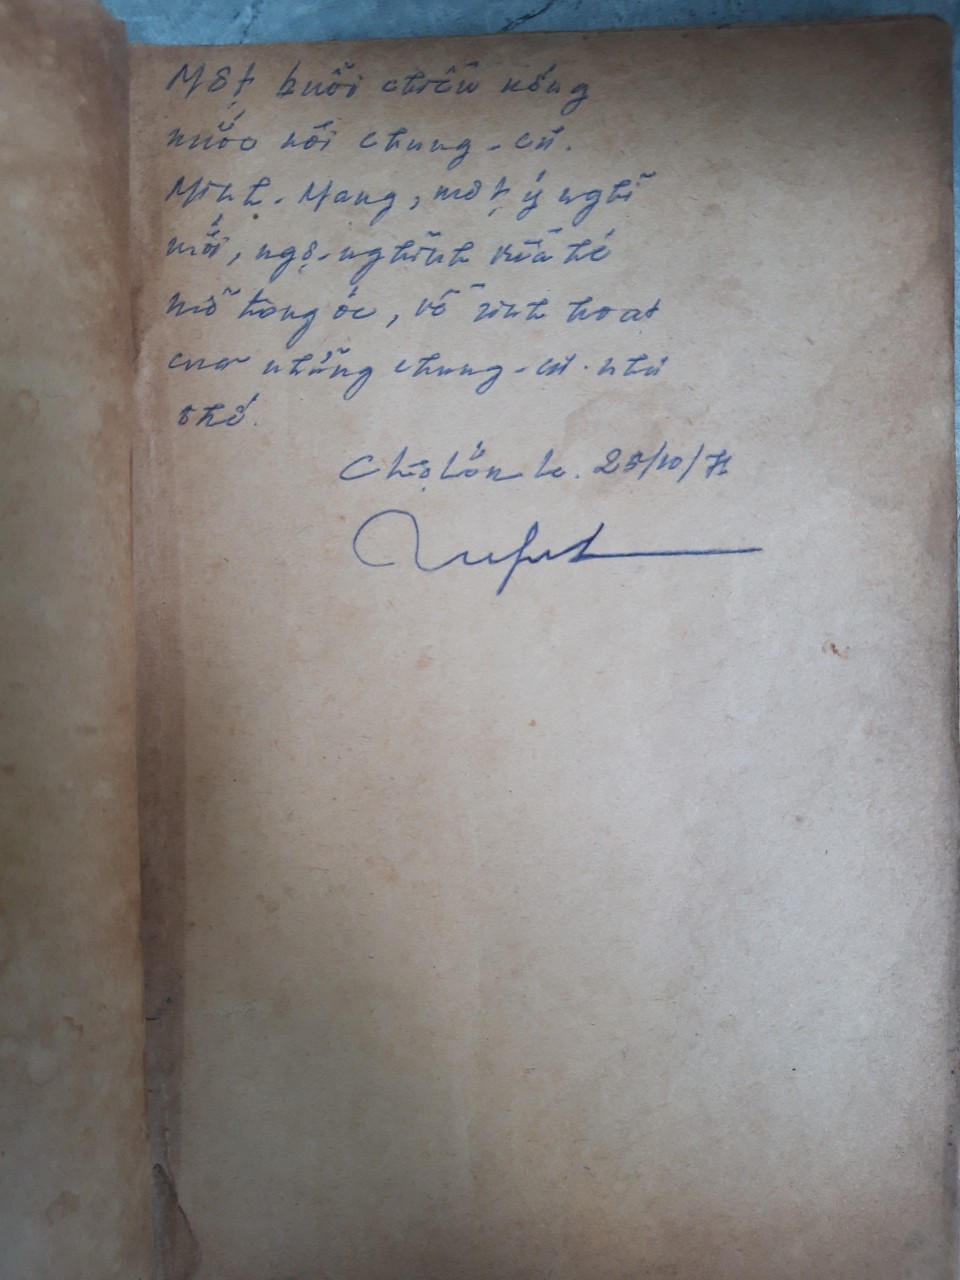 Một buổi chiều nóng
nước nơi chung-cư.
Minh-Mạng, một ý nghĩ
mới, ngộ-nghĩnh vừa hé
mở trong óc, về sinh hoạt
của những chung-cư như
thế.
Chợlớn le. 25/10/71